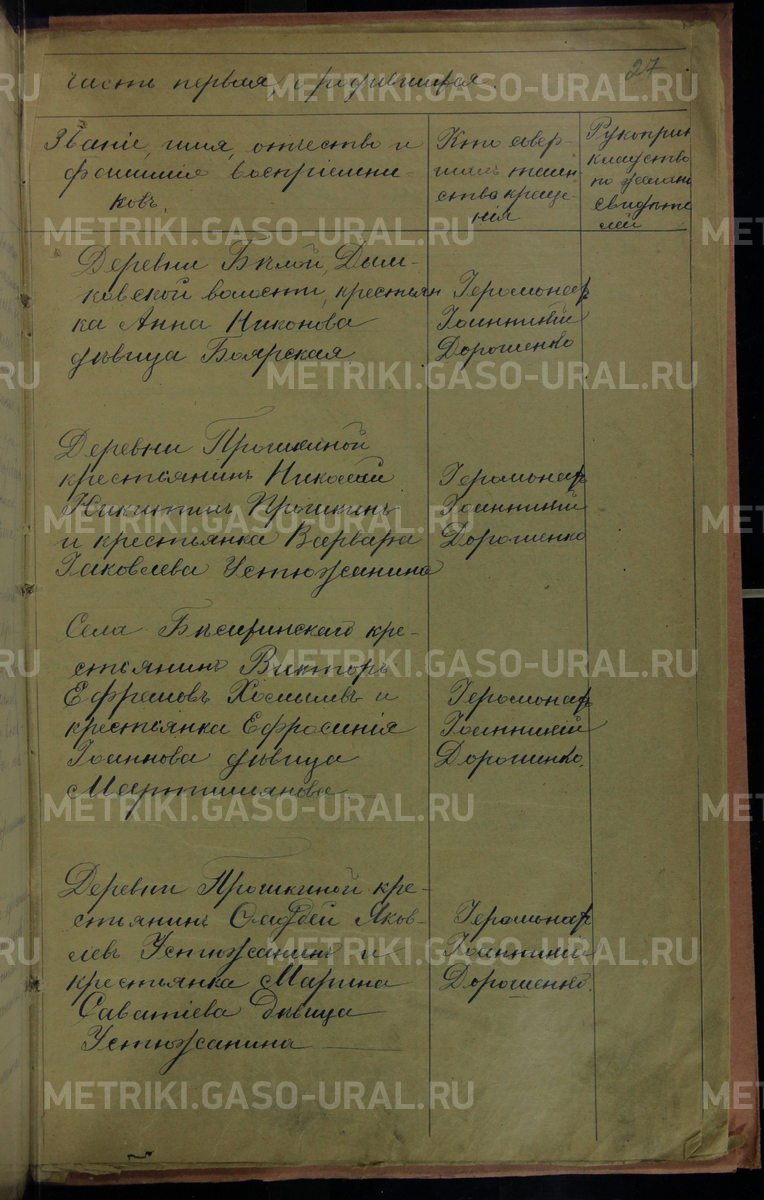 27
Часть первая, о родившихся.
Званіе, имя, отчество и
фамилія воспріемни-
ковъ.
Кто совер-
шалъ таин
ство креще-
нія
Рукоприк
кладство
по желан
свидѣте
лей
Деревни Бѣлой, Дым-
ковской волости, крестьян
ка Анна Никонова
дѣвица Боярская
Іеромонах
Іоанникій
Дорошенко
Деревни Прошкиной
крестьянинъ Николай
Никитинъ Прошкинъ
и крестьянка Варвара
Іаковлева Устюжанина
Іеромонах
Іоанникій
Дорошенко
Села крестьянинъ Викторъ
Ефремовъ и
крестьянка Ефросинія
Іоаннова дѣвица
Мартишянова
Іеромонах
Іоанникій
Дорошенко.
Деревни Прошкиной кре-
стьянинъ Яков-
левъ Устюжанинъ и
крестьянка Марина
Саватіева дѣвица
Устюжанина
Іеромонах
Іоанникій
Дорошенко.
METRIKI.GASO-URAL.RU